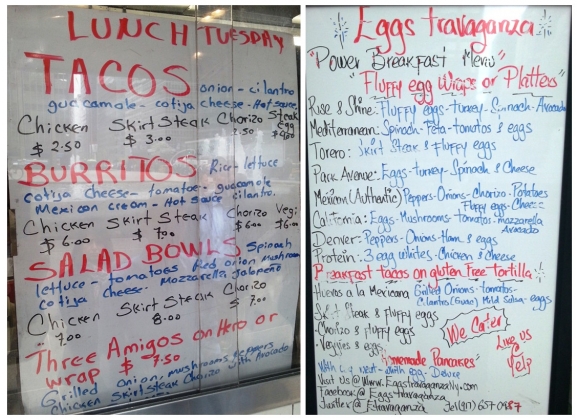 LUNCH TUESDAY
TACOS onion - cilantro
guacamole - cotija cheese - Hot sauce
Chicken Skirt Steak Chorizo Steak egg
$ 2.50 $ 3.00 2.50
BURRITOS Rice - lettuce
cotija cheese - tomatoe - guacamole
Mexican cream - Hot sauce cilantro.
Chicken Skirt Steak Chorizo Vegi
$ 6.00 $ 7.00 $ 6.00 $ 6.00
SALAD BOWLS Spinach
lettuce - tomatoes Red onion mushroom
cotija cheese. Mozzarella jalapeño
Chicken Skirt Steak Chorizo
7.00 8.00 7.00
Three Amigos on Hero or
wrap $ 7.50
Grilled onion, mushrooms peppers
Chicken Skirt Steak Chorizo with Avocado
Eggs travaganza
"Power Breakfast Menu"
"Fluffy egg Wraps or Platters"
Rise & Shine: Fluffy eggs - turkey - Spinach - Avocado
Mediterranean: Spinach - Feta - tomatos & eggs
Torero: Skirt Steak & Fluffy eggs
Park Avenue: Eggs - turkey - Spinach & Cheese
Mexican (Authentic) Peppers - Onions - Chorizo - Potatoes
Fluffy eggs - Cheese
California: Eggs - Mushrooms - tomatos - mozzarella
Avocado
Denver: Peppers - Onions - Ham & eggs
Protein: 3 egg whites - Chicken & Cheese
Breakfast tacos on gluten Free tortilla
Huevos a la Mexicana Grilled Onions - tomatos -
Cilantro (Guac) Mild Salsa - eggs
Skirt Steak & Fluffy eggs
Chorizo & fluffy eggs
Veggies & eggs
We Cater
Like us
Yelp
Homemade Pancakes"
Visit Us @ www.Eggstravaganzany.com
Facebook: @ Eggstravaganza
Twitter: @ Etravaganza